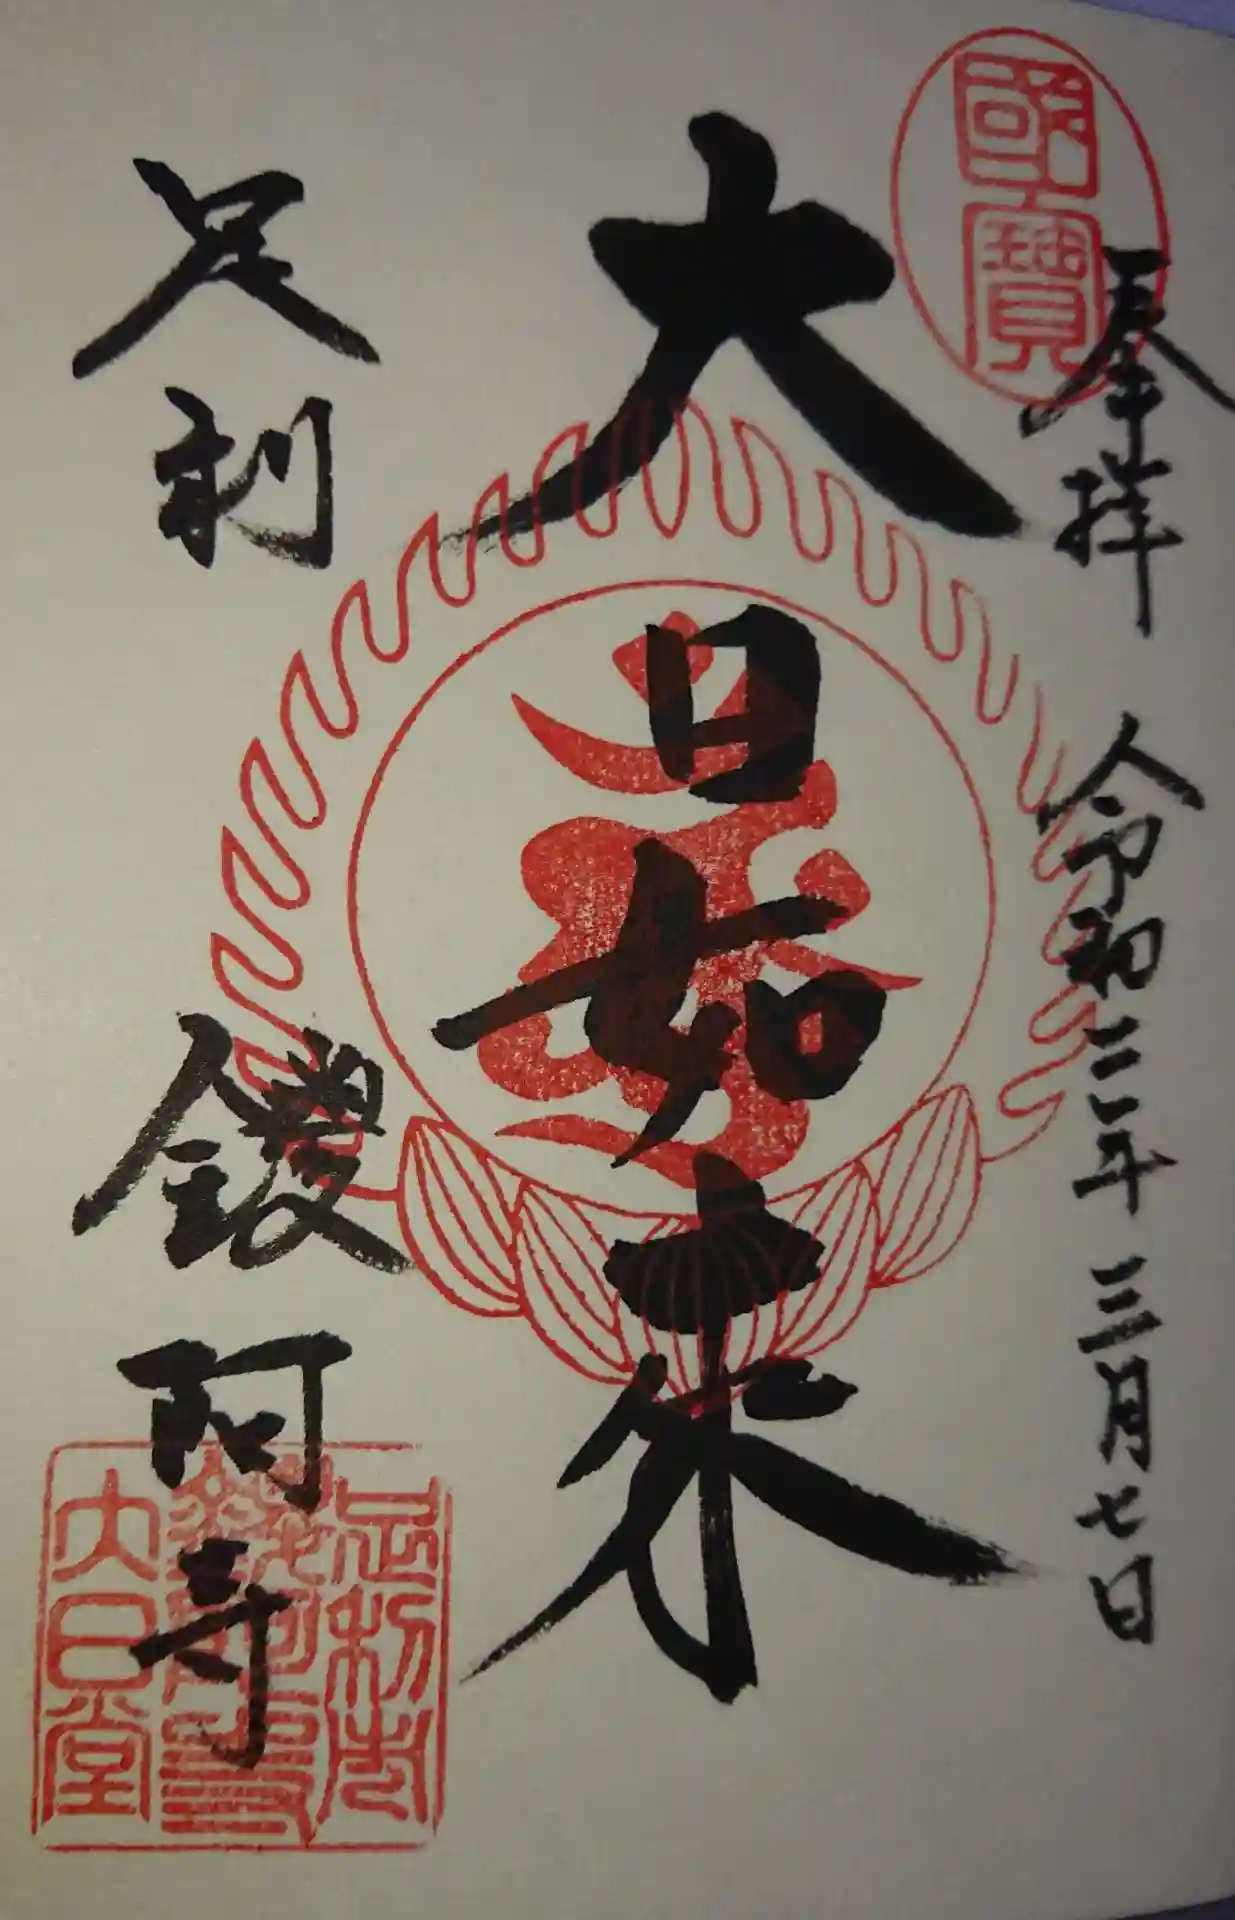 國寶
奉拝 令和三年三月七日
大日如来
足利 鑁阿寺
足利
鑁阿寺
大日堂